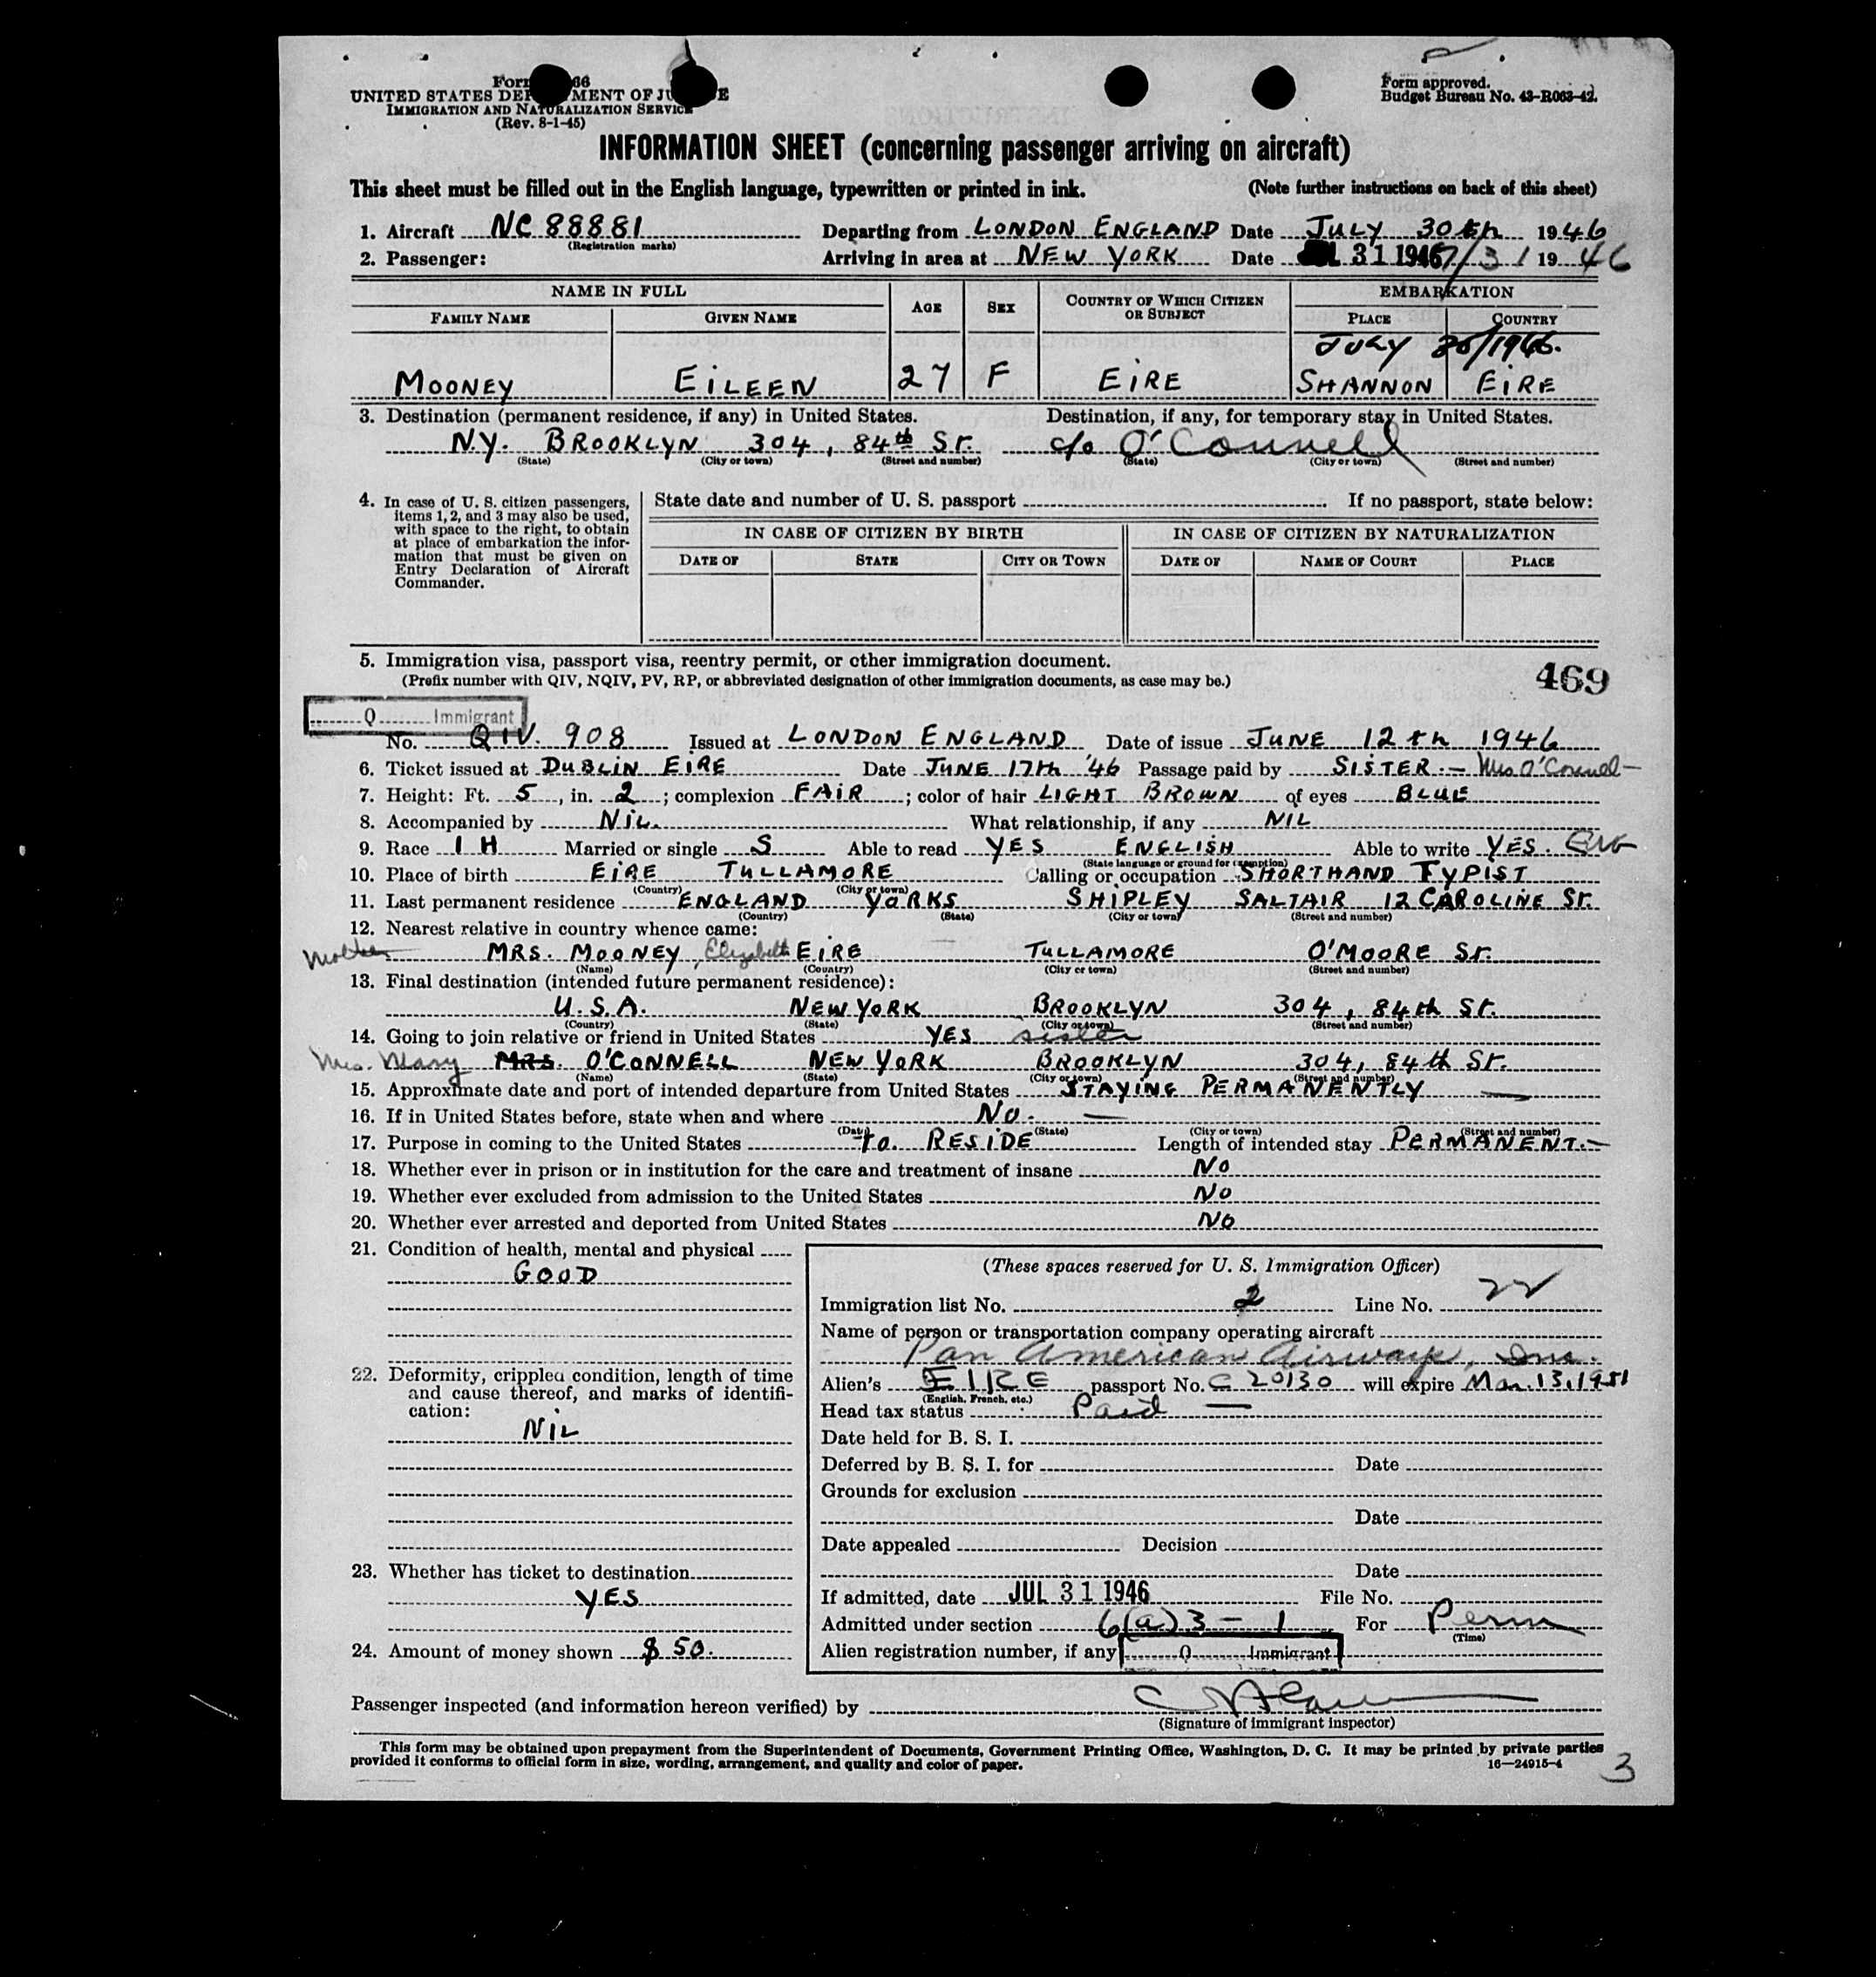 Form 66
UNITED STATES DEPARTMENT OF JUSTICE
IMMIGRATION AND NATURALIZATION SERVICE
(Rev. 8-1-45)
Form approved.
Budget Bureau No. 43-R063-42.
INFORMATION SHEET (concerning passenger arriving on aircraft)
This sheet must be filled out in the English language, typewritten or printed in ink. (Note further instructions on back of this sheet)
1. Aircraft NC 88881 Departing from LONDON ENGLAND Date JULY 30th 1946
(Registration marks)
2. Passenger: Arriving in area at NEW YORK Date JUL 31 1946 7/31 1946
NAME IN FULL AGE SEX COUNTRY OF WHICH CITIZEN OR SUBJECT EMBARKATION
FAMILY NAME GIVEN NAME PLACE COUNTRY
JULY 30/1946.
MOONEY EILEEN 27 F EIRE SHANNON EIRE
3. Destination (permanent residence, if any) in United States. Destination, if any, for temporary stay in United States.
N.Y. BROOKLYN 304, 84th St. c/o O'Connell
(State) (City or town) (Street and number) (State) (City or town) (Street and number)
4. In case of U. S. citizen passengers, items 1, 2, and 3 may also be used, with space to the right, to obtain at place of embarkation the information that must be given on Entry Declaration of Aircraft Commander.
State date and number of U. S. passport If no passport, state below:
IN CASE OF CITIZEN BY BIRTH IN CASE OF CITIZEN BY NATURALIZATION
DATE OF STATE CITY OR TOWN DATE OF NAME OF COURT PLACE
5. Immigration visa, passport visa, reentry permit, or other immigration document.
(Prefix number with QIV, NQIV, PV, RP, or abbreviated designation of other immigration documents, as case may be.)
469
Q Immigrant
No. QIV. 908 Issued at LONDON ENGLAND Date of issue JUNE 12th 1946
6. Ticket issued at DUBLIN EIRE Date JUNE 17th '46 Passage paid by SISTER.- Mrs O'Connell-
7. Height: Ft. 5, in. 2; complexion FAIR; color of hair LIGHT BROWN of eyes BLUE
8. Accompanied by NIL. What relationship, if any NIL
9. Race IH Married or single S Able to read YES ENGLISH Able to write YES. Eng
(State language or ground for exemption)
10. Place of birth EIRE TULLAMORE Calling or occupation SHORTHAND TYPIST
(Country) (City or town)
11. Last permanent residence ENGLAND YORKS SHIPLEY SALTAIR 12 CAROLINE St.
(Country) (State) (City or town) (Street and number)
12. Nearest relative in country whence came:
Mother MRS. MOONEY, Elizabeth EIRE TULLAMORE O'MOORE St.
(Name) (Country) (City or town) (Street and number)
13. Final destination (intended future permanent residence):
U.S.A. NEW YORK BROOKLYN 304, 84th St.
(Country) (State) (City or town) (Street and number)
14. Going to join relative or friend in United States YES sister
Mrs. Mary MRS. O'CONNELL NEW YORK BROOKLYN 304, 84th St.
(Name) (State) (City or town) (Street and number)
15. Approximate date and port of intended departure from United States STAYING PERMANENTLY
16. If in United States before, state when and where No. -
(Date) (State) (City or town) (Street and number)
17. Purpose in coming to the United States to. RESIDE Length of intended stay PERMANENT.-
18. Whether ever in prison or in institution for the care and treatment of insane No
19. Whether ever excluded from admission to the United States No
20. Whether ever arrested and deported from United States No
21. Condition of health, mental and physical
GOOD
22. Deformity, crippled condition, length of time and cause thereof, and marks of identification:
NIL
23. Whether has ticket to destination
YES
24. Amount of money shown $ 50.
(These spaces reserved for U. S. Immigration Officer)
Immigration list No. 2 Line No. 22
Name of person or transportation company operating aircraft
Pan American Airways, Inc.
Alien's EIRE passport No. C 20130 will expire Mar. 13, 1951
(English, French, etc.)
Head tax status Paid -
Date held for B. S. I.
Deferred by B. S. I. for Date
Grounds for exclusion
Date
Date appealed Decision
Date
If admitted, date JUL 31 1946 File No.
Admitted under section 6(a)3-1 For Perm
(Time)
Alien registration number, if any Q Immigrant
Passenger inspected (and information hereon verified) by
(Signature of immigrant inspector)
This form may be obtained upon prepayment from the Superintendent of Documents, Government Printing Office, Washington, D. C. It may be printed by private parties
provided it conforms to official form in size, wording, arrangement, and quality and color of paper. 16—24915-4
3